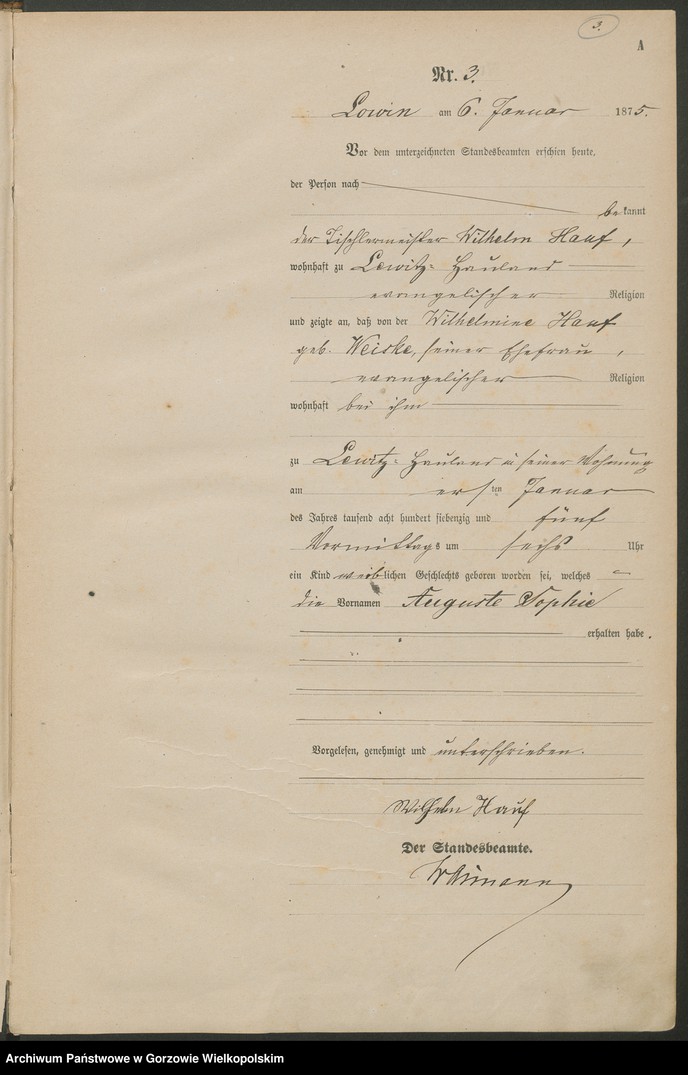 3.
A
Nr. 3.
Lowin am 6. Januar 1875.
Vor dem unterzeichneten Standesbeamten erschien heute,
der Person nach
bekannt
der Tischlermeister Wilhelm Hauf,
wohnhaft zu Lewitz-Hauland
evangelischer Religion
und zeigte an, daß von der Wilhelmine Hauf
geb. Weiske, seiner Ehefrau,
evangelischer Religion
wohnhaft bei ihm
zu Lewitz-Hauland in seiner Wohnung
am ersten Januar
des Jahres tausend acht hundert siebenzig und fünf
Vormittags um sechs Uhr
ein Kind weiblichen Geschlechts geboren worden sei, welches
die Vornamen Auguste Sophie
erhalten habe.
Vorgelesen, genehmigt und unterschrieben.
Wilhelm Hauf
Der Standesbeamte.
Archiwum Państwowe w Gorzowie Wielkopolskim